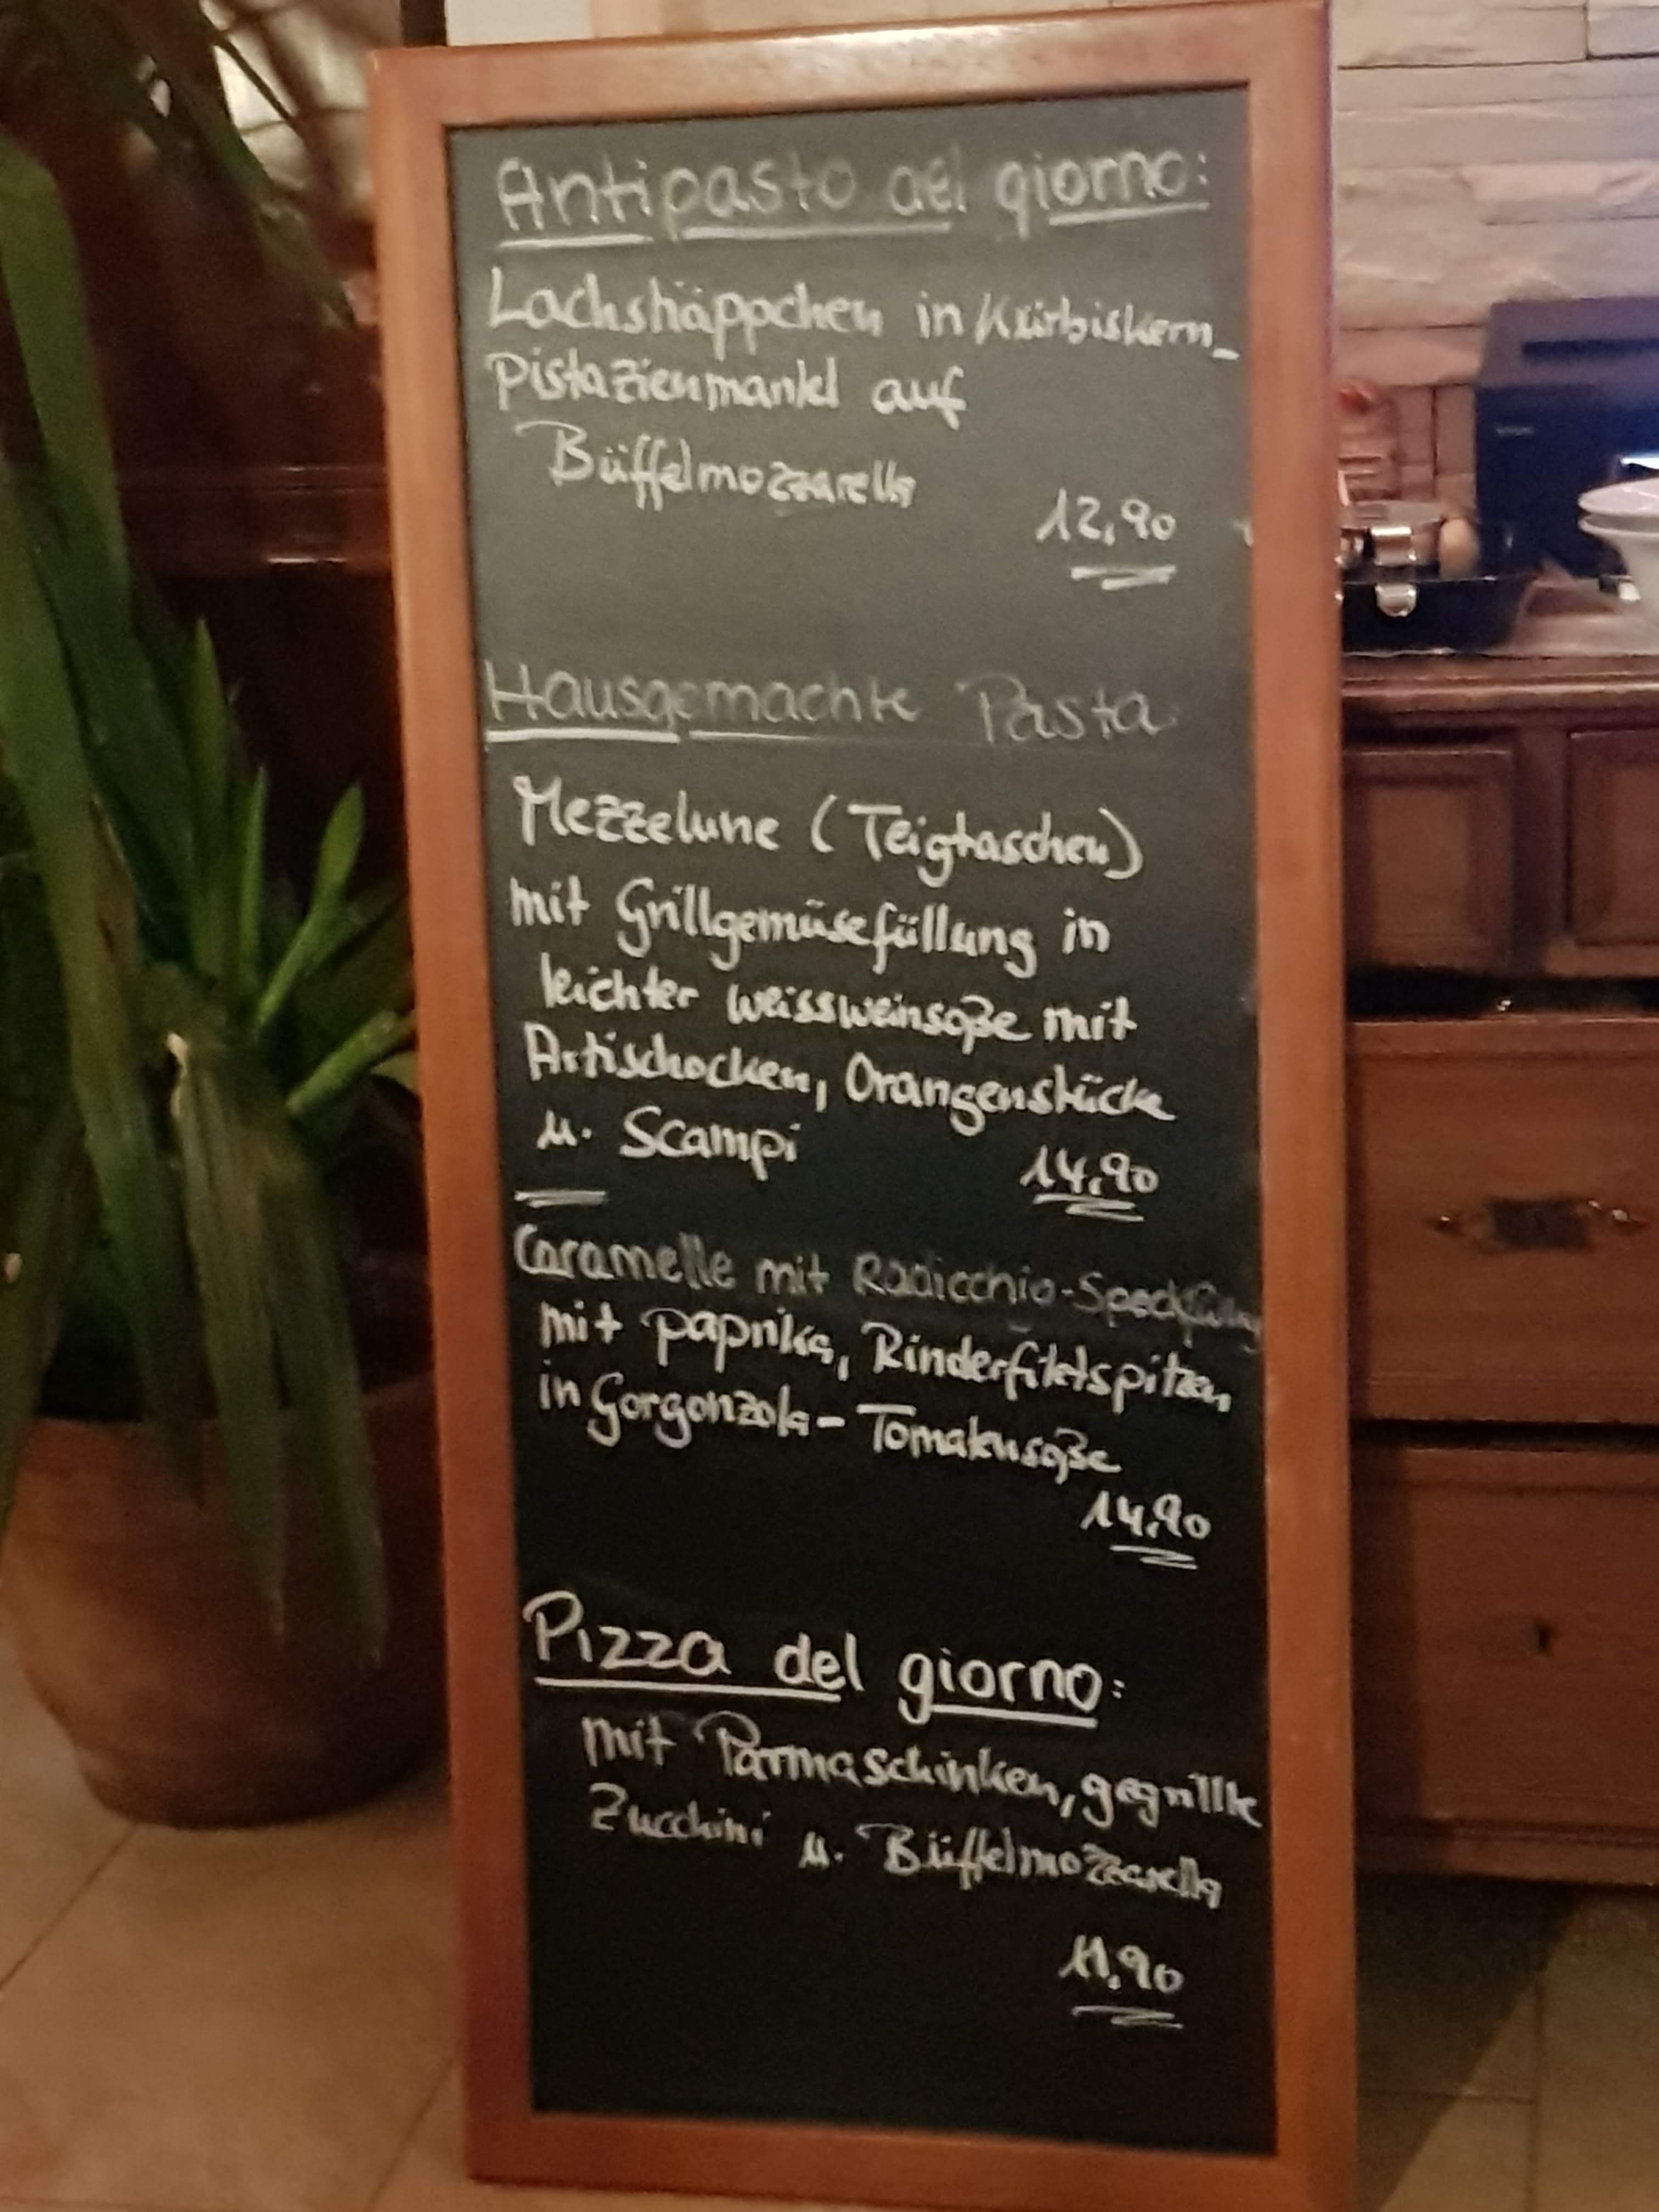 Antipasto del giorno:
Lachshäppchen in Kürbiskern-
Pistazienmantel auf
Büffelmozzarella
12,90
Hausgemachte Pasta
Mezzelune (Teigtaschen)
mit Grillgemüsefüllung in
leichter weissweinsoße mit
Artischocken, Orangenstücke
u. Scampi
14,90
Caramelle mit Radicchio-Speckfüllung
mit paprika, Rinderfiletspitzen,
in Gorgonzola-Tomatensoße
14,90
Pizza del giorno:
mit Parmaschinken, gegrillte
Zucchini u. Büffelmozzarella
11,90